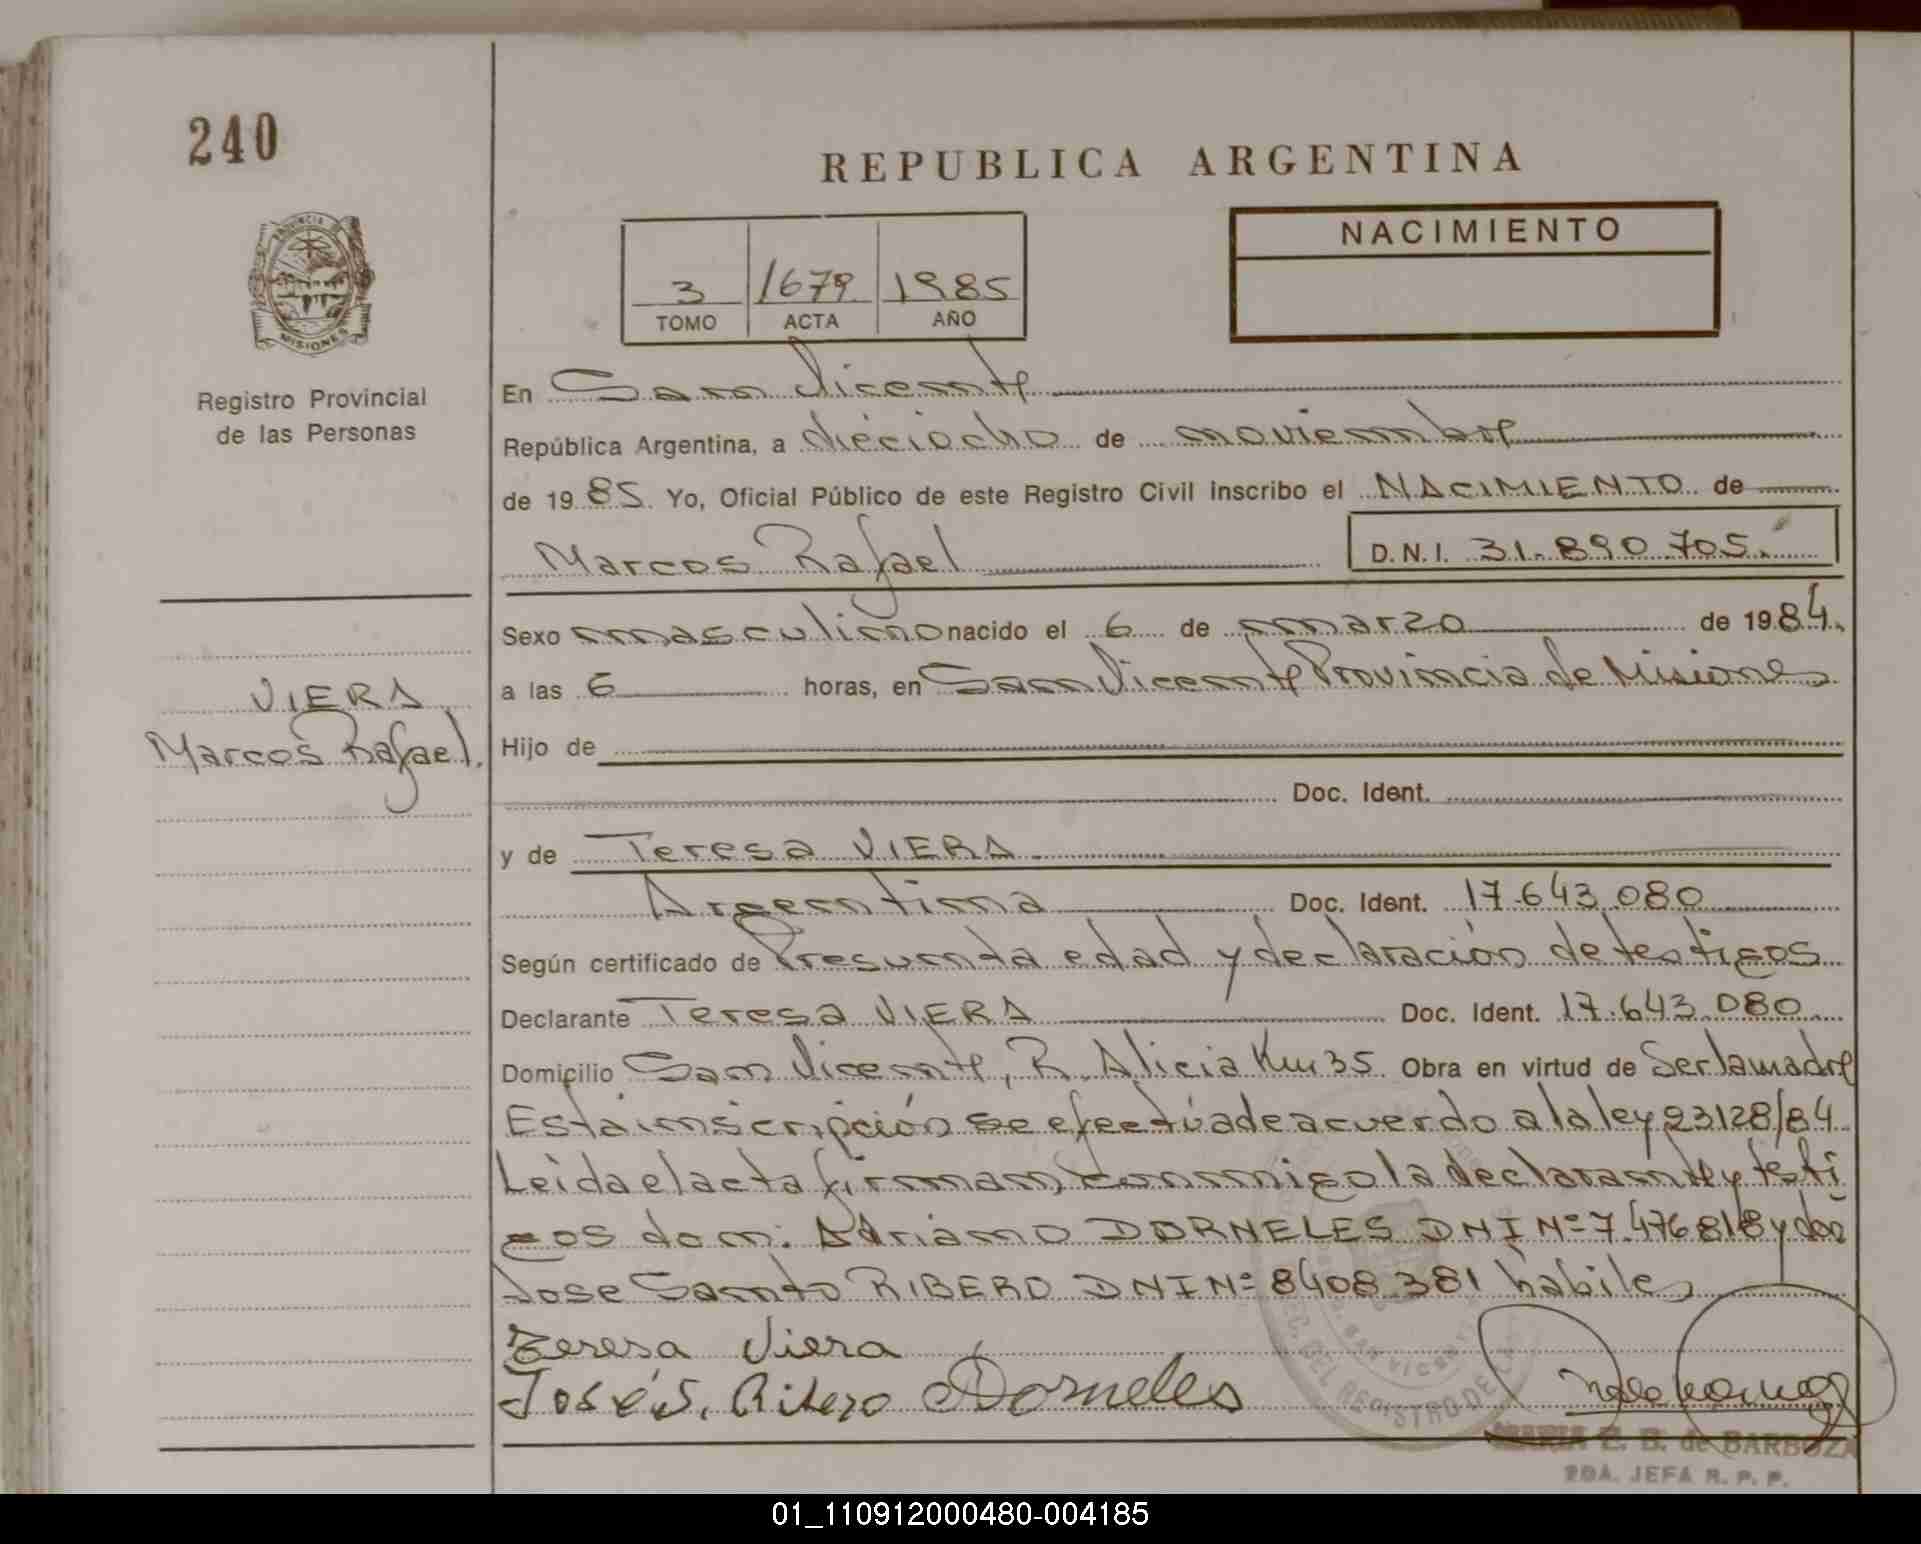 240
REPUBLICA ARGENTINA
PROVINCIA DE
MISIONES
Registro Provincial
de las Personas
3 1679 1985
TOMO ACTA AÑO
NACIMIENTO
En San Vicente
República Argentina, a dieciocho de noviembre
de 1985. Yo, Oficial Público de este Registro Civil inscribo el NACIMIENTO de
Marcos Rafael D.N.I. 31.890.705.
Sexo masculino nacido el 6 de marzo de 1984.
a las 6 horas, en San Vicente Provincia de Misiones
VIERA
Marcos Rafael.
Hijo de
Doc. Ident.
y de Teresa VIERA
Argentina Doc. Ident. 17.643.080
Según certificado de Presunta edad y declaración de testigos
Declarante Teresa VIERA Doc. Ident. 17.643.080
Domicilio San Vicente, R. Alicia Km 35. Obra en virtud de Ser la madre
Esta inscripción se efectúa de acuerdo a la ley 23128/84.
Leida el acta firman conmigo la declarante y testi
gos don: Adriano DORNELES DNI Nº 7.476818 y don
Jose Santo RIBERO DNI Nº 8408.381 habiles
Teresa Viera
José S. Ribero Dorneles
SAN VICENTE
DEL REGISTRO DE
MARIA E. B. de BARBOZA
2DA. JEFA R. P. P.
01_110912000480-004185